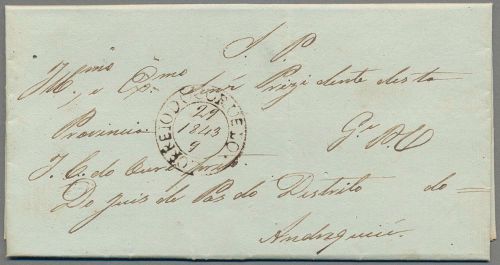 S. P.
Illmo. e Exmo. Snr. Prezidente desta
Provincia G.e P. C
I. C. do Ouro Preto
Do Juis de Pas do Distrito do =
CORREIO DO
29
1843
9